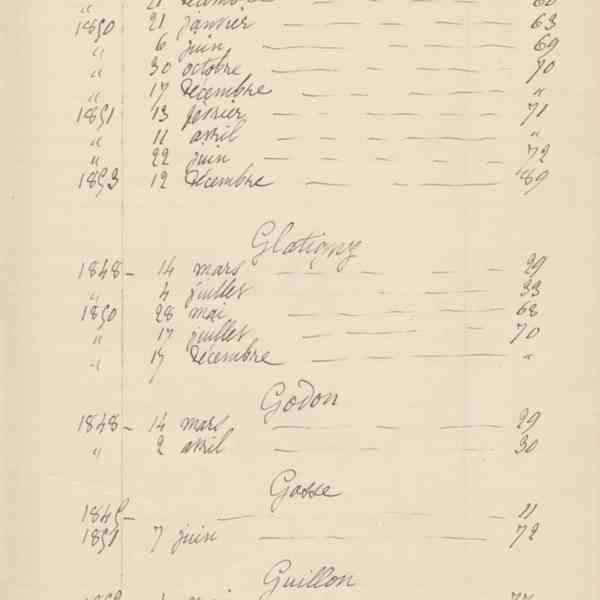 " 21 décembre 60
1850 21 janvier 63
" 6 juin 69
" 30 octobre 70
" 17 décembre "
1851 13 février 71
" 11 avril "
" 22 juin 72
1853 12 décembre 89
Glatigny
1848 - 14 mars 29
" 4 juillet 33
1850 28 mai 68
" 17 juillet 70
" 17 décembre "
Godon
1848 - 14 mars 29
" 2 avril 30
Gosse
1845 - 11
1851 7 juin 72
Guillon